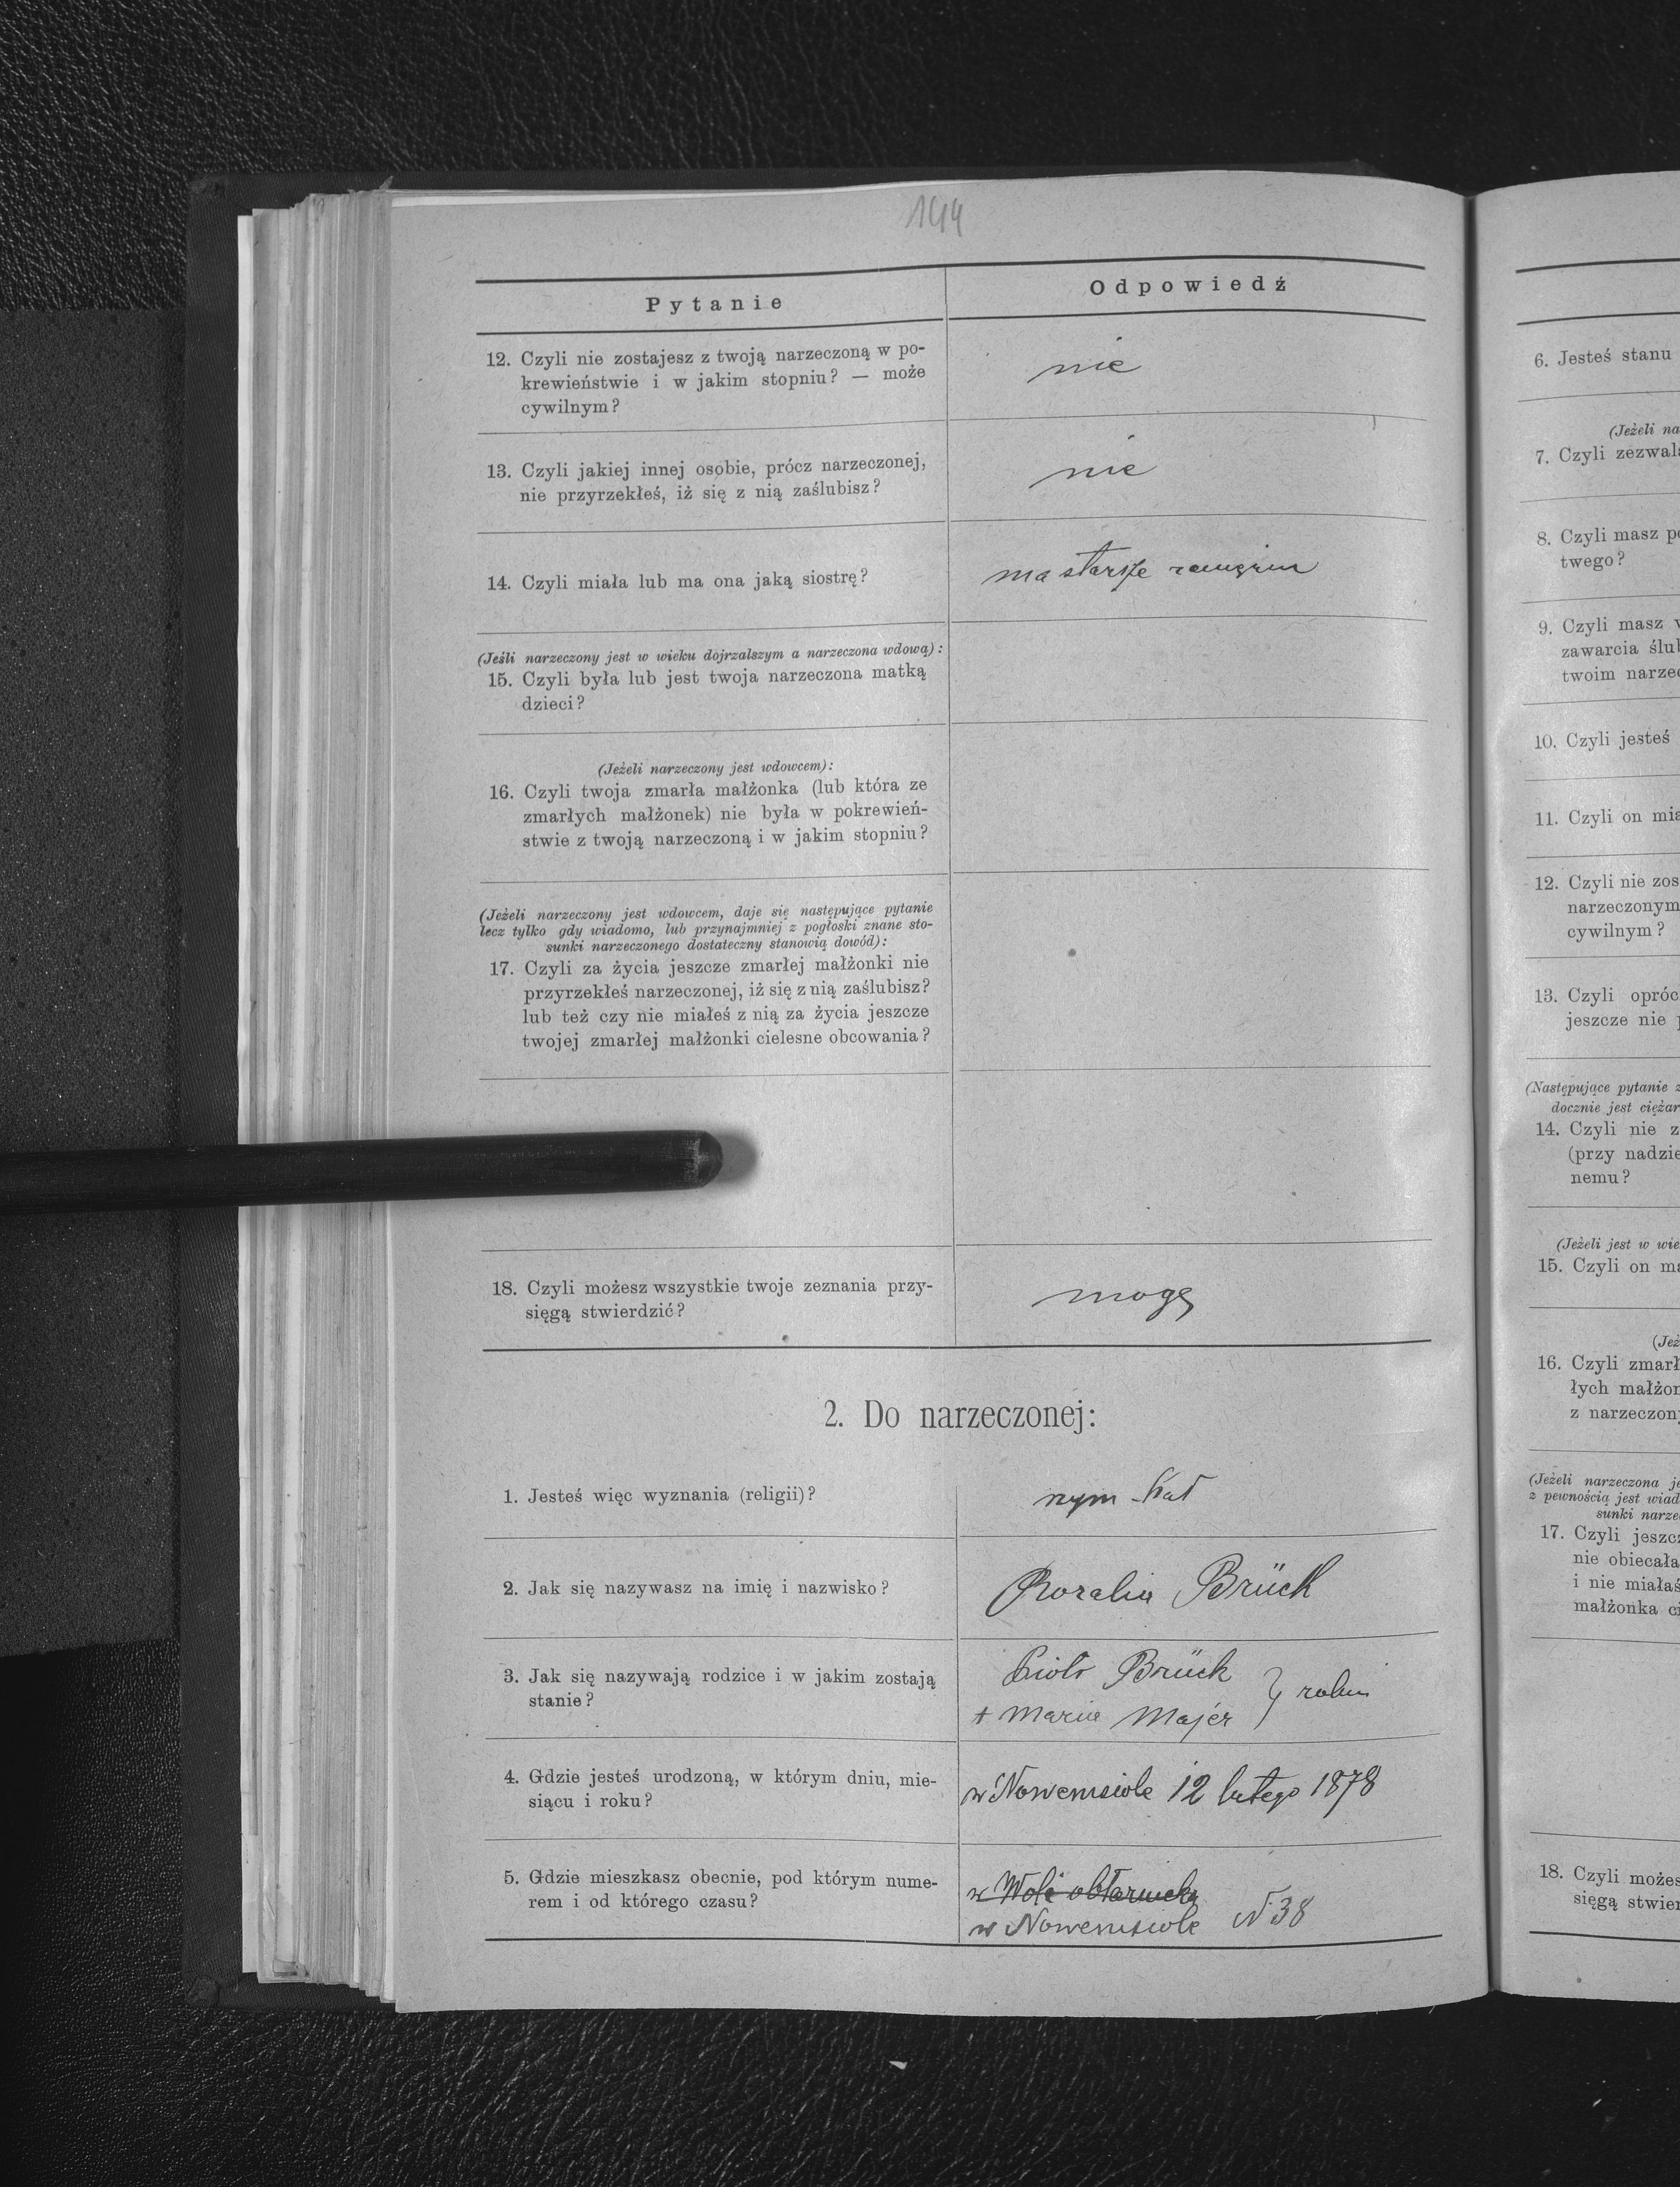 144
Pytanie
Odpowiedź
12. Czyli nie zostajesz z twoją narzeczoną w po-
krewieństwie i w jakim stopniu? — może
cywilnym?
nie
13. Czyli jakiej innej osobie, prócz narzeczonej,
nie przyrzekłeś, iż się z nią zaślubisz?
nie
14. Czyli miała lub ma ona jaką siostrę?
ma starsze
(Jeśli narzeczony jest w wieku dojrzalszym a narzeczona wdową):
15. Czyli była lub jest twoja narzeczona matką
dzieci?
(Jeżeli narzeczony jest wdowcem):
16. Czyli twoja zmarła małżonka (lub która ze
zmarłych małżonek) nie była w pokrewień-
stwie z twoją narzeczoną i w jakim stopniu?
(Jeżeli narzeczony jest wdowcem, daje się następujące pytanie
lecz tylko gdy wiadomo, lub przynajmniej z pogłoski znane sto-
sunki narzeczonego dostateczny stanowią dowód):
17. Czyli za życia jeszcze zmarłej małżonki nie
przyrzekłeś narzeczonej, iż się z nią zaślubisz?
lub też czy nie miałeś z nią za życia jeszcze
twojej zmarłej małżonki cielesne obcowania?
18. Czyli możesz wszystkie twoje zeznania przy-
sięgą stwierdzić?
mogę
2. Do narzeczonej:
1. Jesteś więc wyznania (religii)?
rzym-kat
2. Jak się nazywasz na imię i nazwisko?
Rozalia Brück
3. Jak się nazywają rodzice i w jakim zostają
stanie?
Piotr Brück
+ Maria Majer } rolni
4. Gdzie jesteś urodzoną, w którym dniu, mie-
siącu i roku?
w Nowemsiole 12 lutego 1878
5. Gdzie mieszkasz obecnie, pod którym nume-
rem i od którego czasu?
w Woli
w Nowemsiole N 38
6. Jesteś stanu
(Jeżeli na
7. Czyli zezwala
8. Czyli masz po
twego?
9. Czyli masz w
zawarcia ślub
twoim narzec
10. Czyli jesteś
11. Czyli on mia
12. Czyli nie zos
narzeczonym
cywilnym?
13. Czyli opróc
jeszcze nie p
(Następujące pytanie z
docznie jest ciężar
14. Czyli nie z
(przy nadzie
nemu?
(Jeżeli jest w wie
15. Czyli on ma
(Jeż
16. Czyli zmarł
łych małżon
z narzeczony
(Jeżeli narzeczona je
z pewnością jest wiad
sunki narze
17. Czyli jeszcz
nie obiecała
i nie miałaś
małżonka ci
18. Czyli możes
sięgą stwier